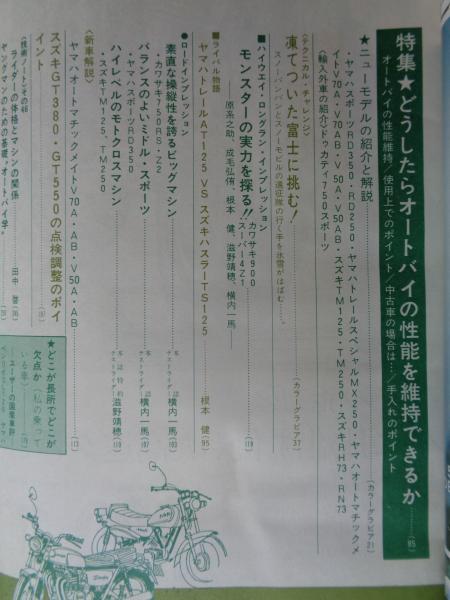 特集★どうしたらオートバイの性能を維持できるか……(85)
オートバイの性能維持/使用上でのポイント/中古車の場合は…/手入れのポイント
★ニューモデルの紹介と解説……(カラーグラビア21)
・ヤマハスポーツRD350・RD250・ヤマハトレールスペシャルMX250・ヤマハオートマチックメ
イトV70A・V70AB・V50A・V50AB・スズキTM125・TM250・スズキRH73・RN73
〈輸入外車の紹介〉ドゥカティ750スポーツ
〈テクニカル・チャレンジ〉
凍てついた富士に挑む!……(カラーグラビア37)
スノーバンパンとスノーモビルの遠征隊の行く手を氷雪がはばむ…。
■ハイウエイ・ロングラン・インプレッション
モンスターの実力を探る!!カワサキ900スーパー4Z1……(119)
―原糸之助、成毛弘侑、根本 健、滋野靖穂、横内一馬―
■ライバル物語
ヤマハトレールAT125 VS スズキハスラーTS125……根本 健(95)
●ロードインプレッション
素直な操縦性を誇るビッグマシン……本誌テストライダー 横内一馬(103)
・カワサキ750RS・Z2
バランスのよいミドル・スポーツ……本誌テストライダー 横内一馬(107)
・ヤマハスポーツRD350
ハイレベルのモトクロスマシン……本誌特約テストライダー 滋野靖穂(110)
・スズキTM125、TM250
〈新車解説〉
ヤマハオートマチックメイトV70A・AB・V50A・AB……(113)
スズキGT380・GT550の点検調整のポイ
イント
〈技術ノートその46〉
ライダーの体格とマシンの関係……田中
ヤングマンのための基礎"オートバイ学"
★どこが長所でどこが
欠点か〈私の乗って
いる車〉
ユーザーの国産車評